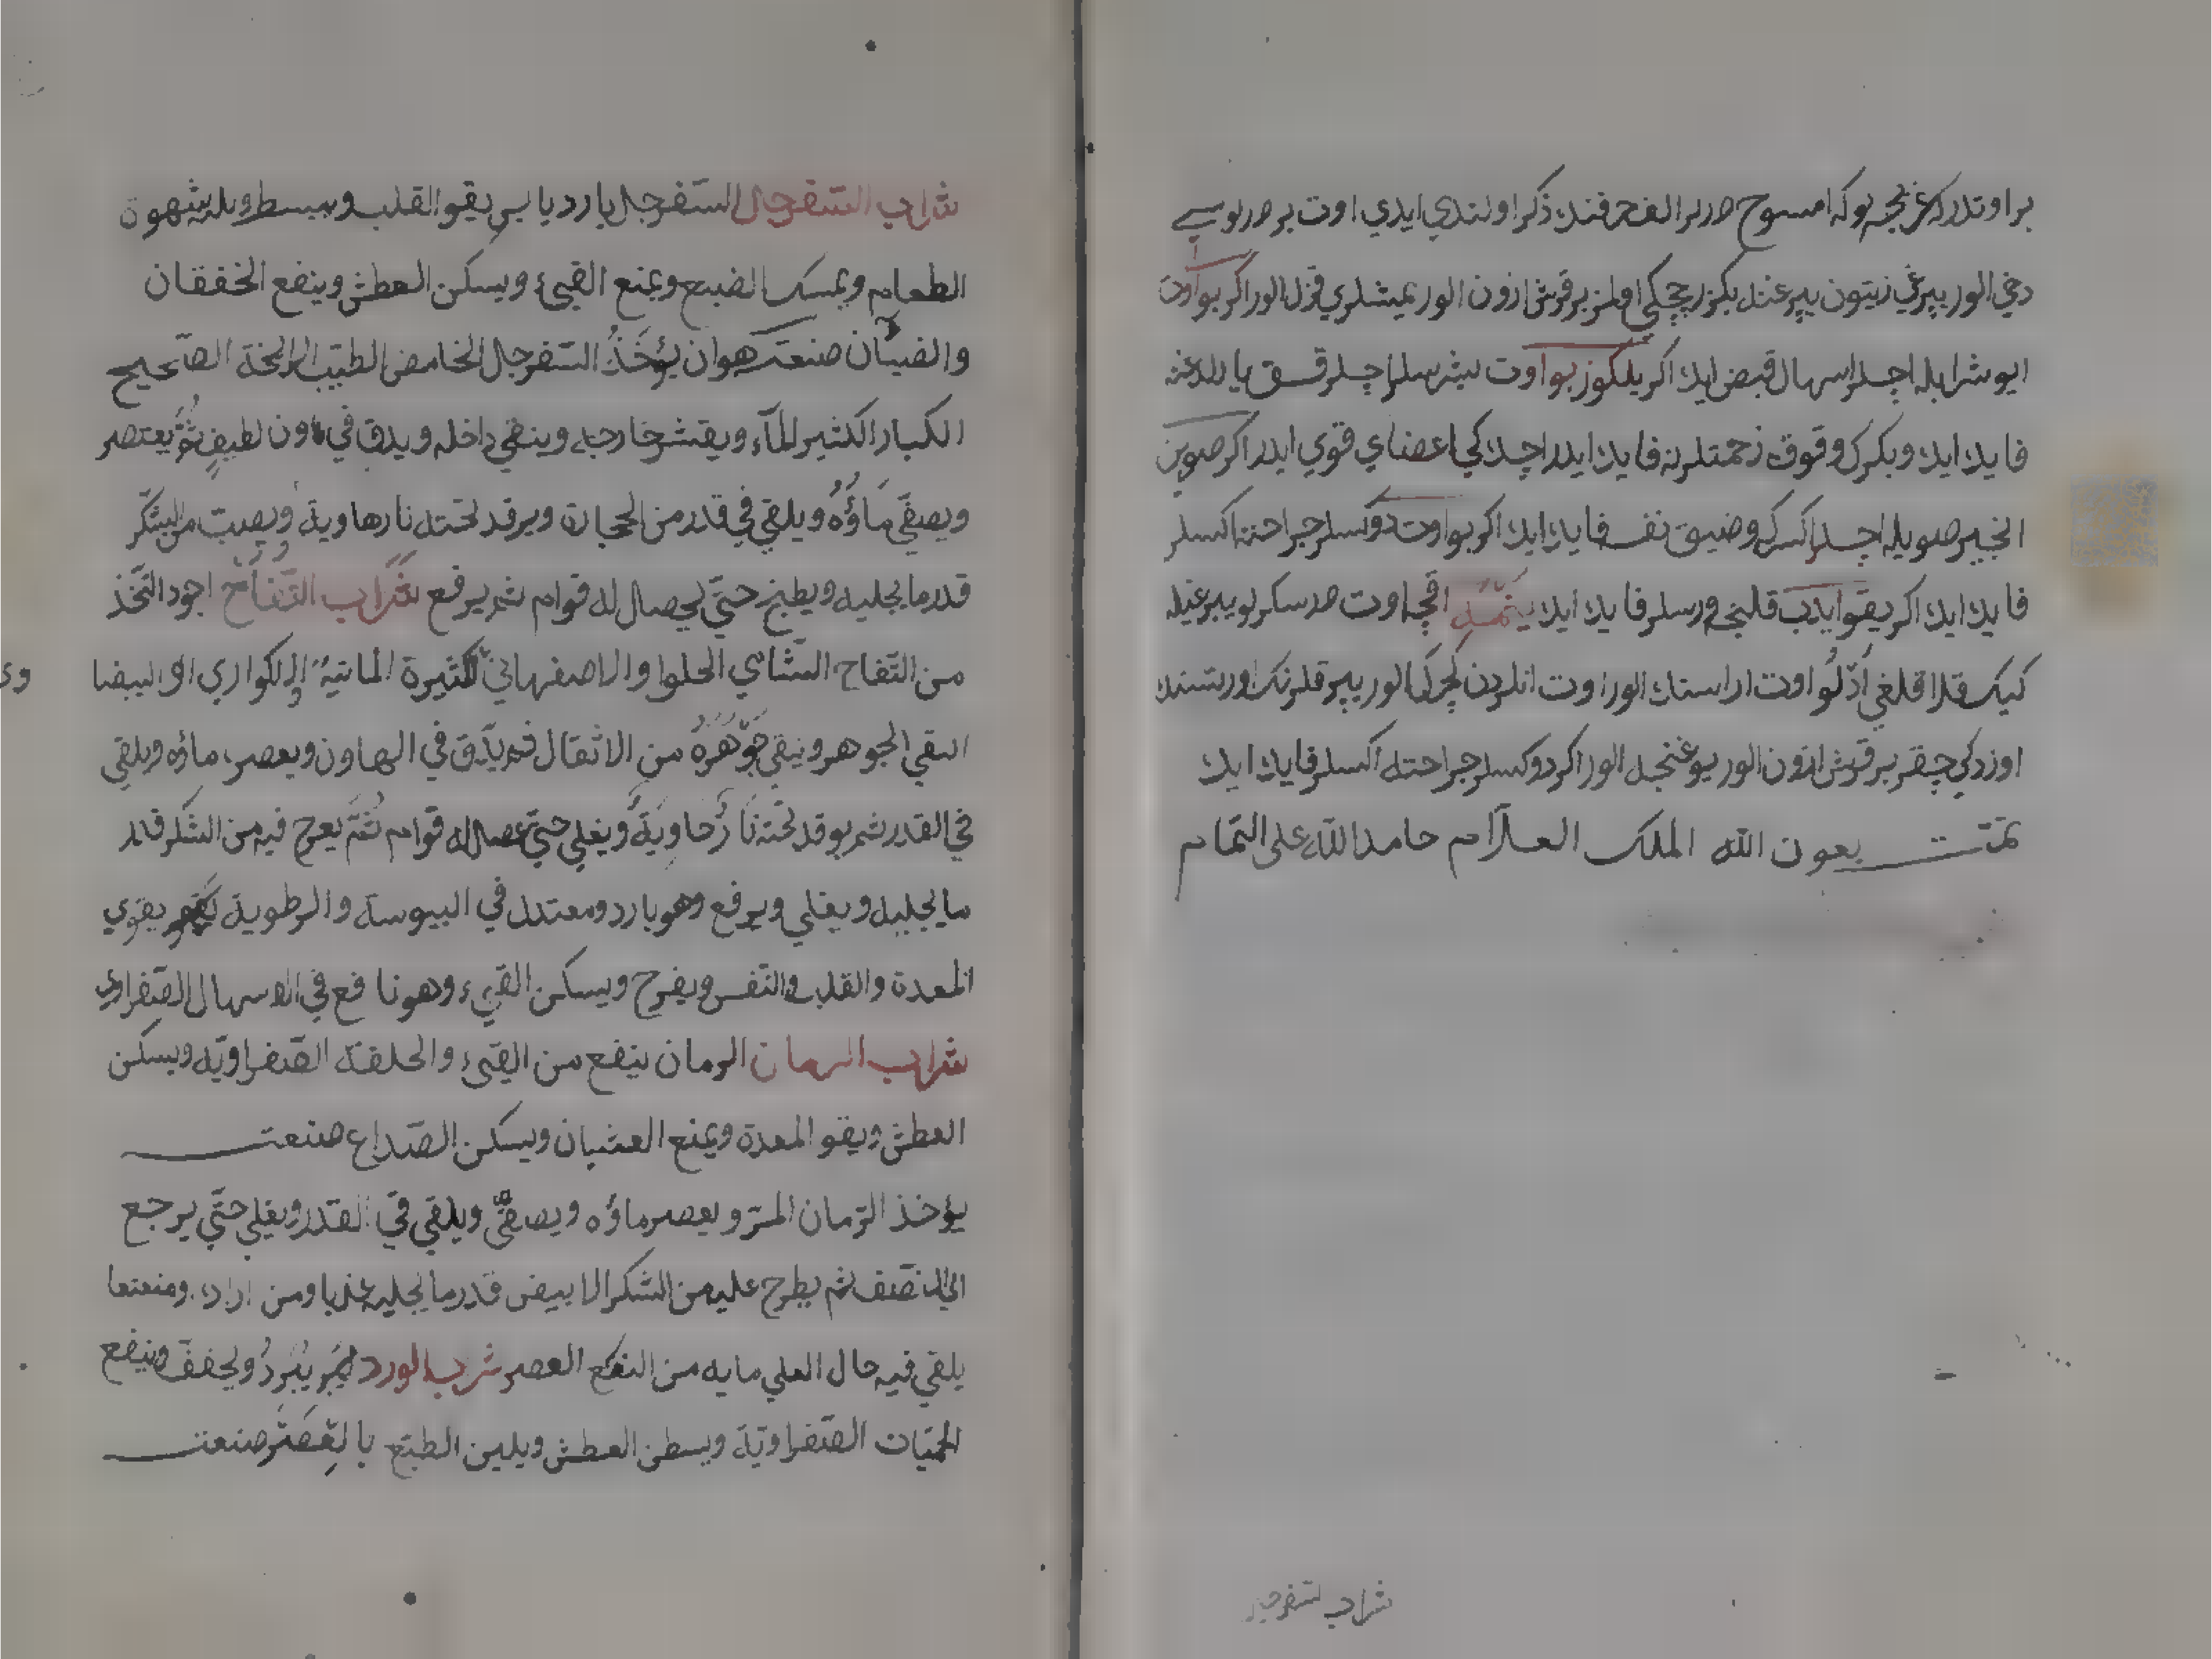 بر اوتدر كه غنچه بوكه امسوح درلر الف حرفنده ذكر اولندي ايدي اوت بردرلوسي
دخي الور يپرغي زيتون يپرغنه بكزر چچكي اولمز بر قرش اوزون الور يمشلري قزل الور اكر بو اوت
ايو شرابله اچلر اسهال قبض ايده اكر يلكوز بو اوت بشرسلر اچلر قسق
فايده ايده وبكرك وقوق زحمتلرنه فايده ايدر اچدكي اعضاي قوي ايدر اكر صوين
انجير صويله اچلر اكسركه وضيق نفسه فايده ايده اكر بو اوت دوكسلر جراحته اكسلر
فايده ايده اكر يقو ايدب قلنجه ورسلر فايده ايده اقجه اوت
كبك اوت اراسنده الور اوت انلردن الور يپرقلرنك اورتسنده
اوزدكي چقر بر قرش اوزون الور بو غنجده الور اكر دوكسلر جراحته اكسلر فايده ايده
تمّت بعون الله الملك العلّام حامدا لله على التمام
شراب السّفرجل
شراب السّفرجل السّفرجل بارد يابس يقو القلب ويبسط ويلد شهوة
الطعام ويمسك الضبع ويمنع القيئ ويسكن العطش وينفع الخفقان
والغثيان صنعته هوان يؤخذ السّفرجل الحامض الطيّب الرايحة الصّحيح
الكبار الكثير المآء ويقشر خارجه وينقي داخله ويدق في هاون لطيف ثمّ يعتصر
ويصفّي ماؤه ويلقي في قدر من الحجارة ويوقد تحته نار هاوية ويصبّ من السّكّر
قدر ما يحليه ويطبخ حتّي يحصال له قوام ثم يرفع شراب التّفاح اجود التّخذ
من التّفاح الشّامي الحلوا والاصفهاني الكثيرة المائيّة البيضا
النقي الجوهر وينقي جوهره من الاثقال ثم يدّق في الهاون ويعصر ماؤه ويلقي
في القدر ثم يوقد تحته نار هاوية ويغلي حتّي يحصال له قوام ثمّ يعرح فيه من السّكر قدر
ما يحليه ويغلي ويرفع وهو بارد ومعتدل في اليبوسة والرطوبة يقوي
المعدة والقلب والنّفس ويفرح ويسكن القيء وهو نافع في الاسهال الصّفراوي
شراب الرمان الرمان ينفع من القيء والحلفة الصّفراويّة ويسكن
العطش ويقو المعدة ويمنع الغشيان ويسكن الصّداع صنعته
يؤخذ الرّمان المزّ ويعصر ماؤه ويصفّي ويلقي في القدر ويغلي حتّي يرجع
الي النّصف ثم يطرح عليه من السّكر الابيض قدر ما يحليه عذبا ومن اراد
يلقي فيه حال الغلي مايه من النعنع العصر شراب الورد يبرد ويجفف وينفع
الحمّيات الصّفراويّة ويسطن العطش ويلين الطبّع صنعته